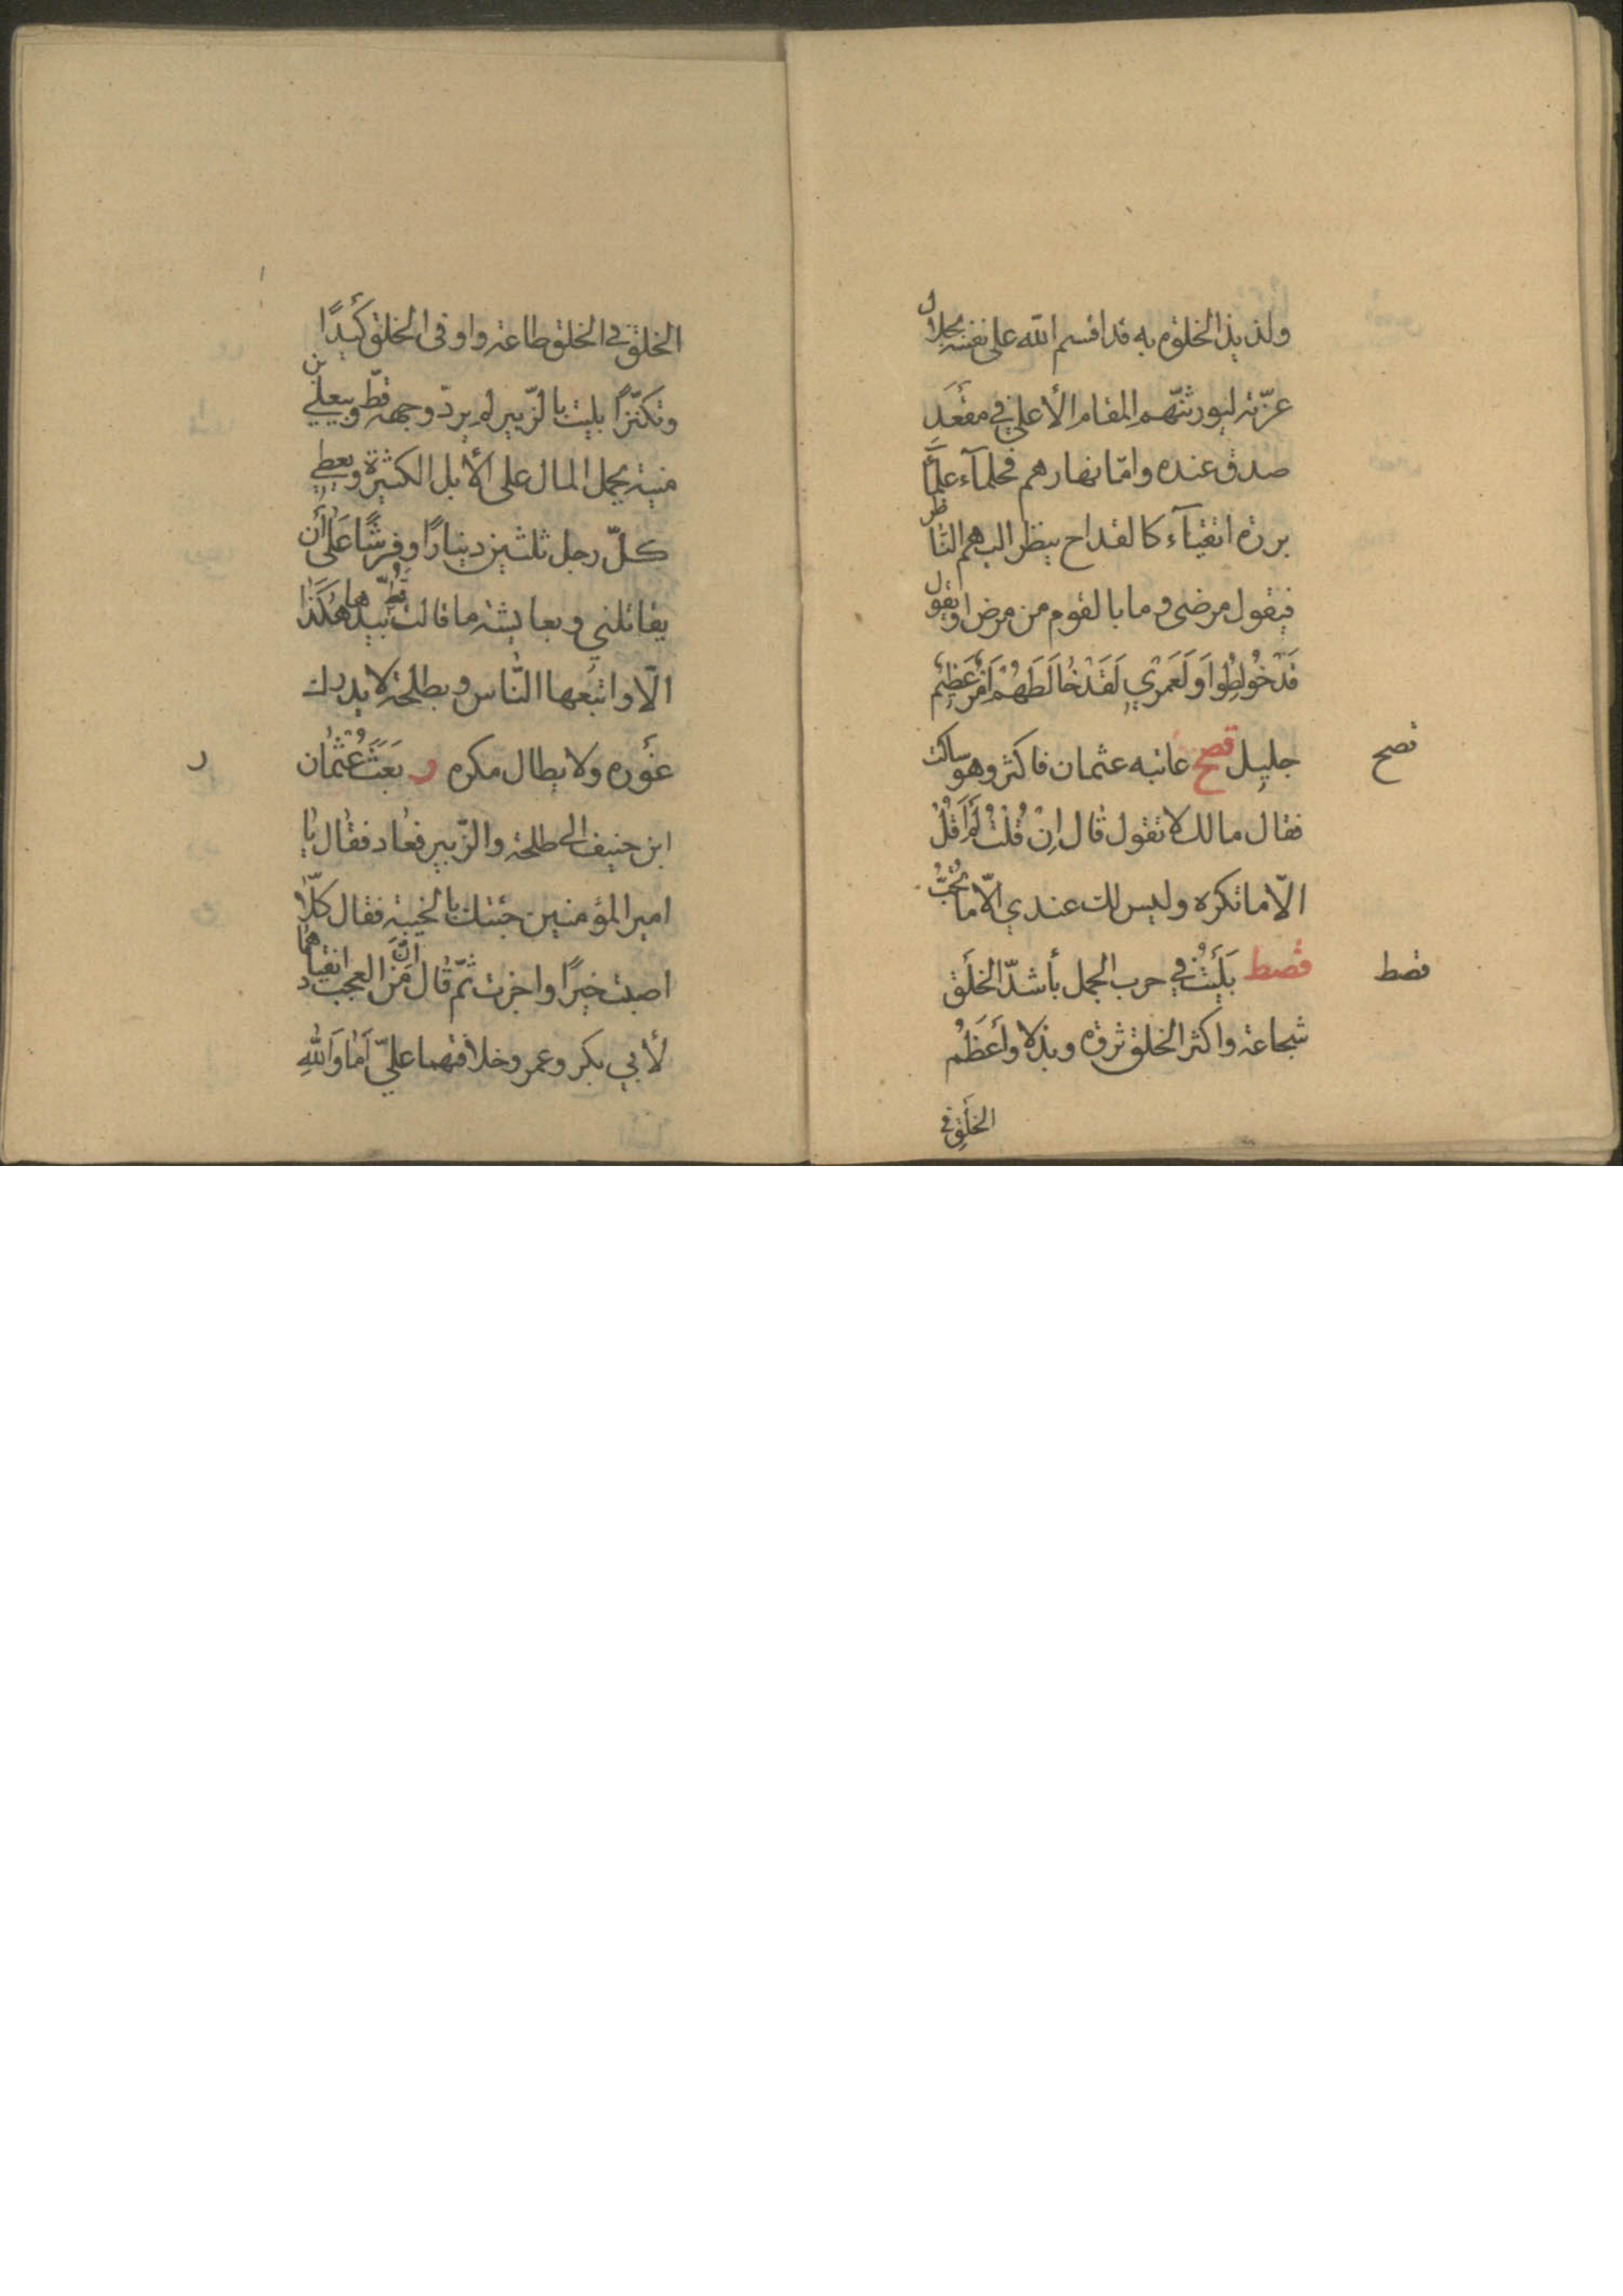 ولذيذ الخلوة به قد اقسم الله على نفسه بجلال
عزّته ليورثنّهم المقام الأعلى في مقعد
صدق عنده وامّا نهارهم فحلمآء علمآ
بررة اتقيآء كالقداح ينظر اليهم الناظر
فيقول مرضى وما بالقوم من مرض او يقول
قَدْ خُولِطُوا وَلَعَمْري لَقَدْ خالَطَهُمْ اَمْرٌ عَظِيْمٌ
جليل قصح عاتبه عثمان فاكثر وهو ساكت
قصح
فقال مالك لا تقول قال اِنْ قُلْتُ لَمْ اَقُلْ
الّا ما تكره وليس لك عندي الّا ما تُحِبُّ
قصط بَلَيْتُ في حرب الجمل بأشدّ الخلق
قصط
شجاعة واكثر الخلق ثروة وبذلا وأعظم
الخلق في
الخلق في الخلق طاعة واوفى الخلق كَيْدًا
وتكثّرًا بليت بالزّبير لم يردّ وجهه قطّ وبيعلي بن
منية يحمل المال على الأبل الكثيرة ويعطي
كلّ رجل ثلثين دينارًا وفرسًا عَلى أن
يقاتلني وبعايشة ما قالت قطّ بيدها هكذا
الّا واتبعها النّاس وبطلحة لا يدرك
غوره ولا يطال مكره ر بَعَثَ عُثْمان
ر
ابن حنيف الى طلحة والزّبير فعاد فقال يا
امير المؤمنين جئتك بالخيبة فقال كلّا
اصبت خيرًا واجرت ثمّ قال اِنَّ مِنَ العجب انقيادهما
لأبي بكر وعمر وخلافهما عليّ اَما وَاللهِ